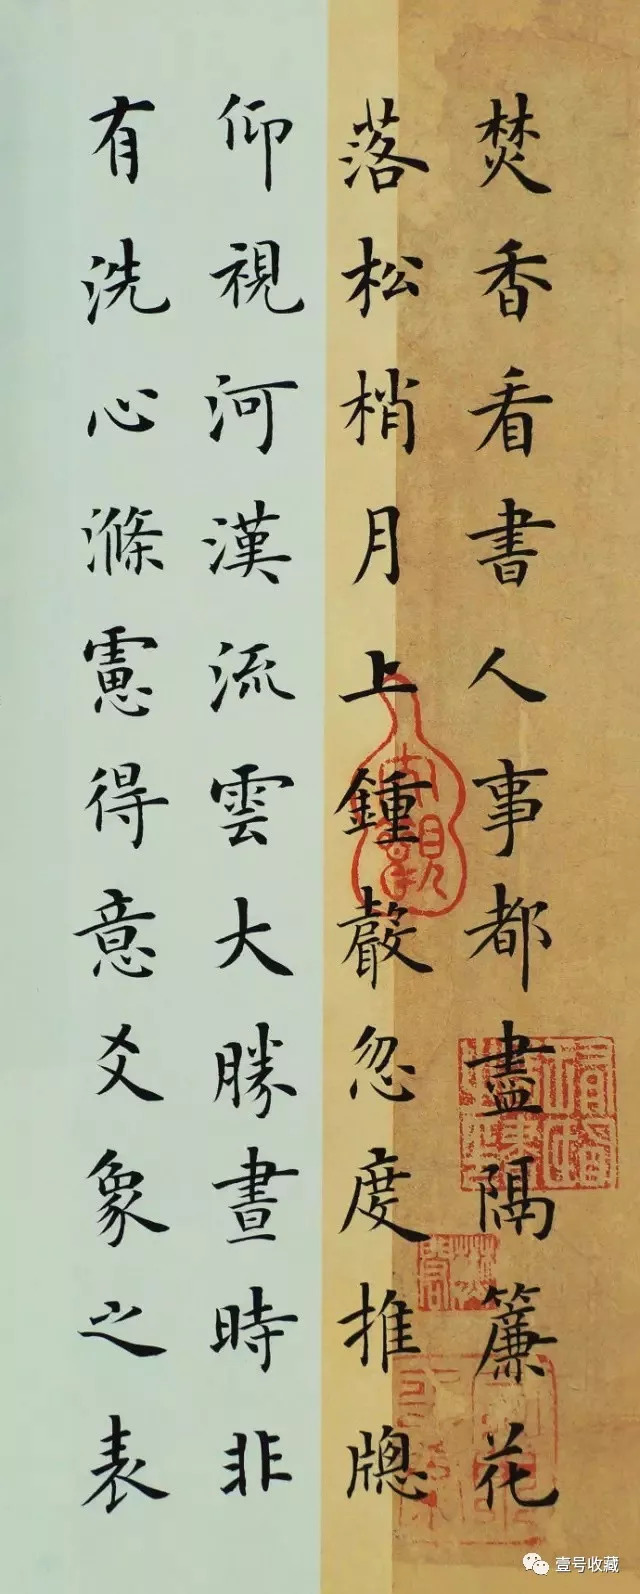 焚香看書人事都盡隔簾花
落松梢月上鍾聲忽度推牕
仰視河漢流雲大勝晝時非
有洗心滌慮得意爻象之表
壹号收藏